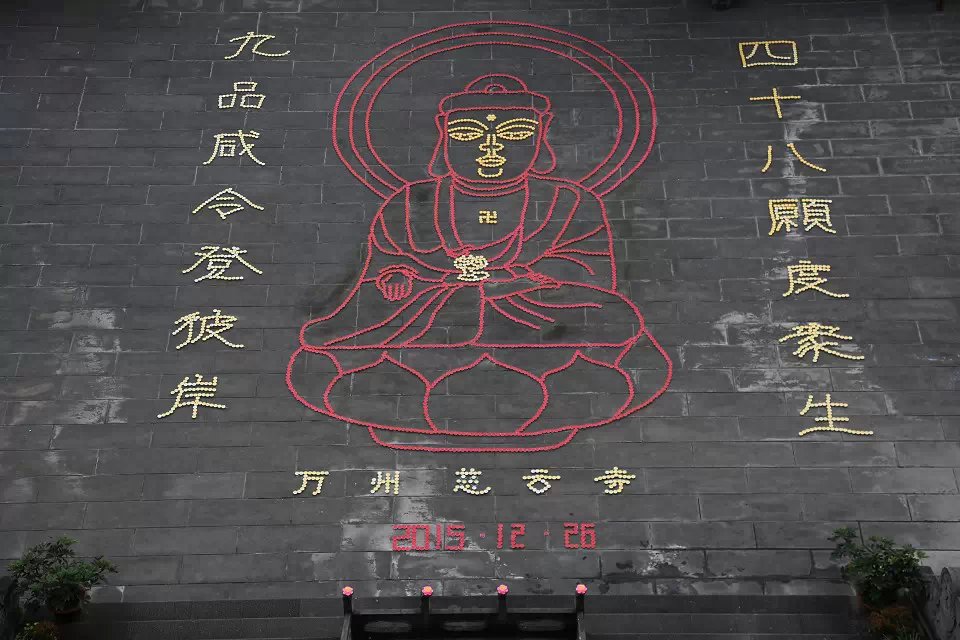 四十八願度衆生
九品咸令登彼岸
卍
万州慈云寺
2015·12·26